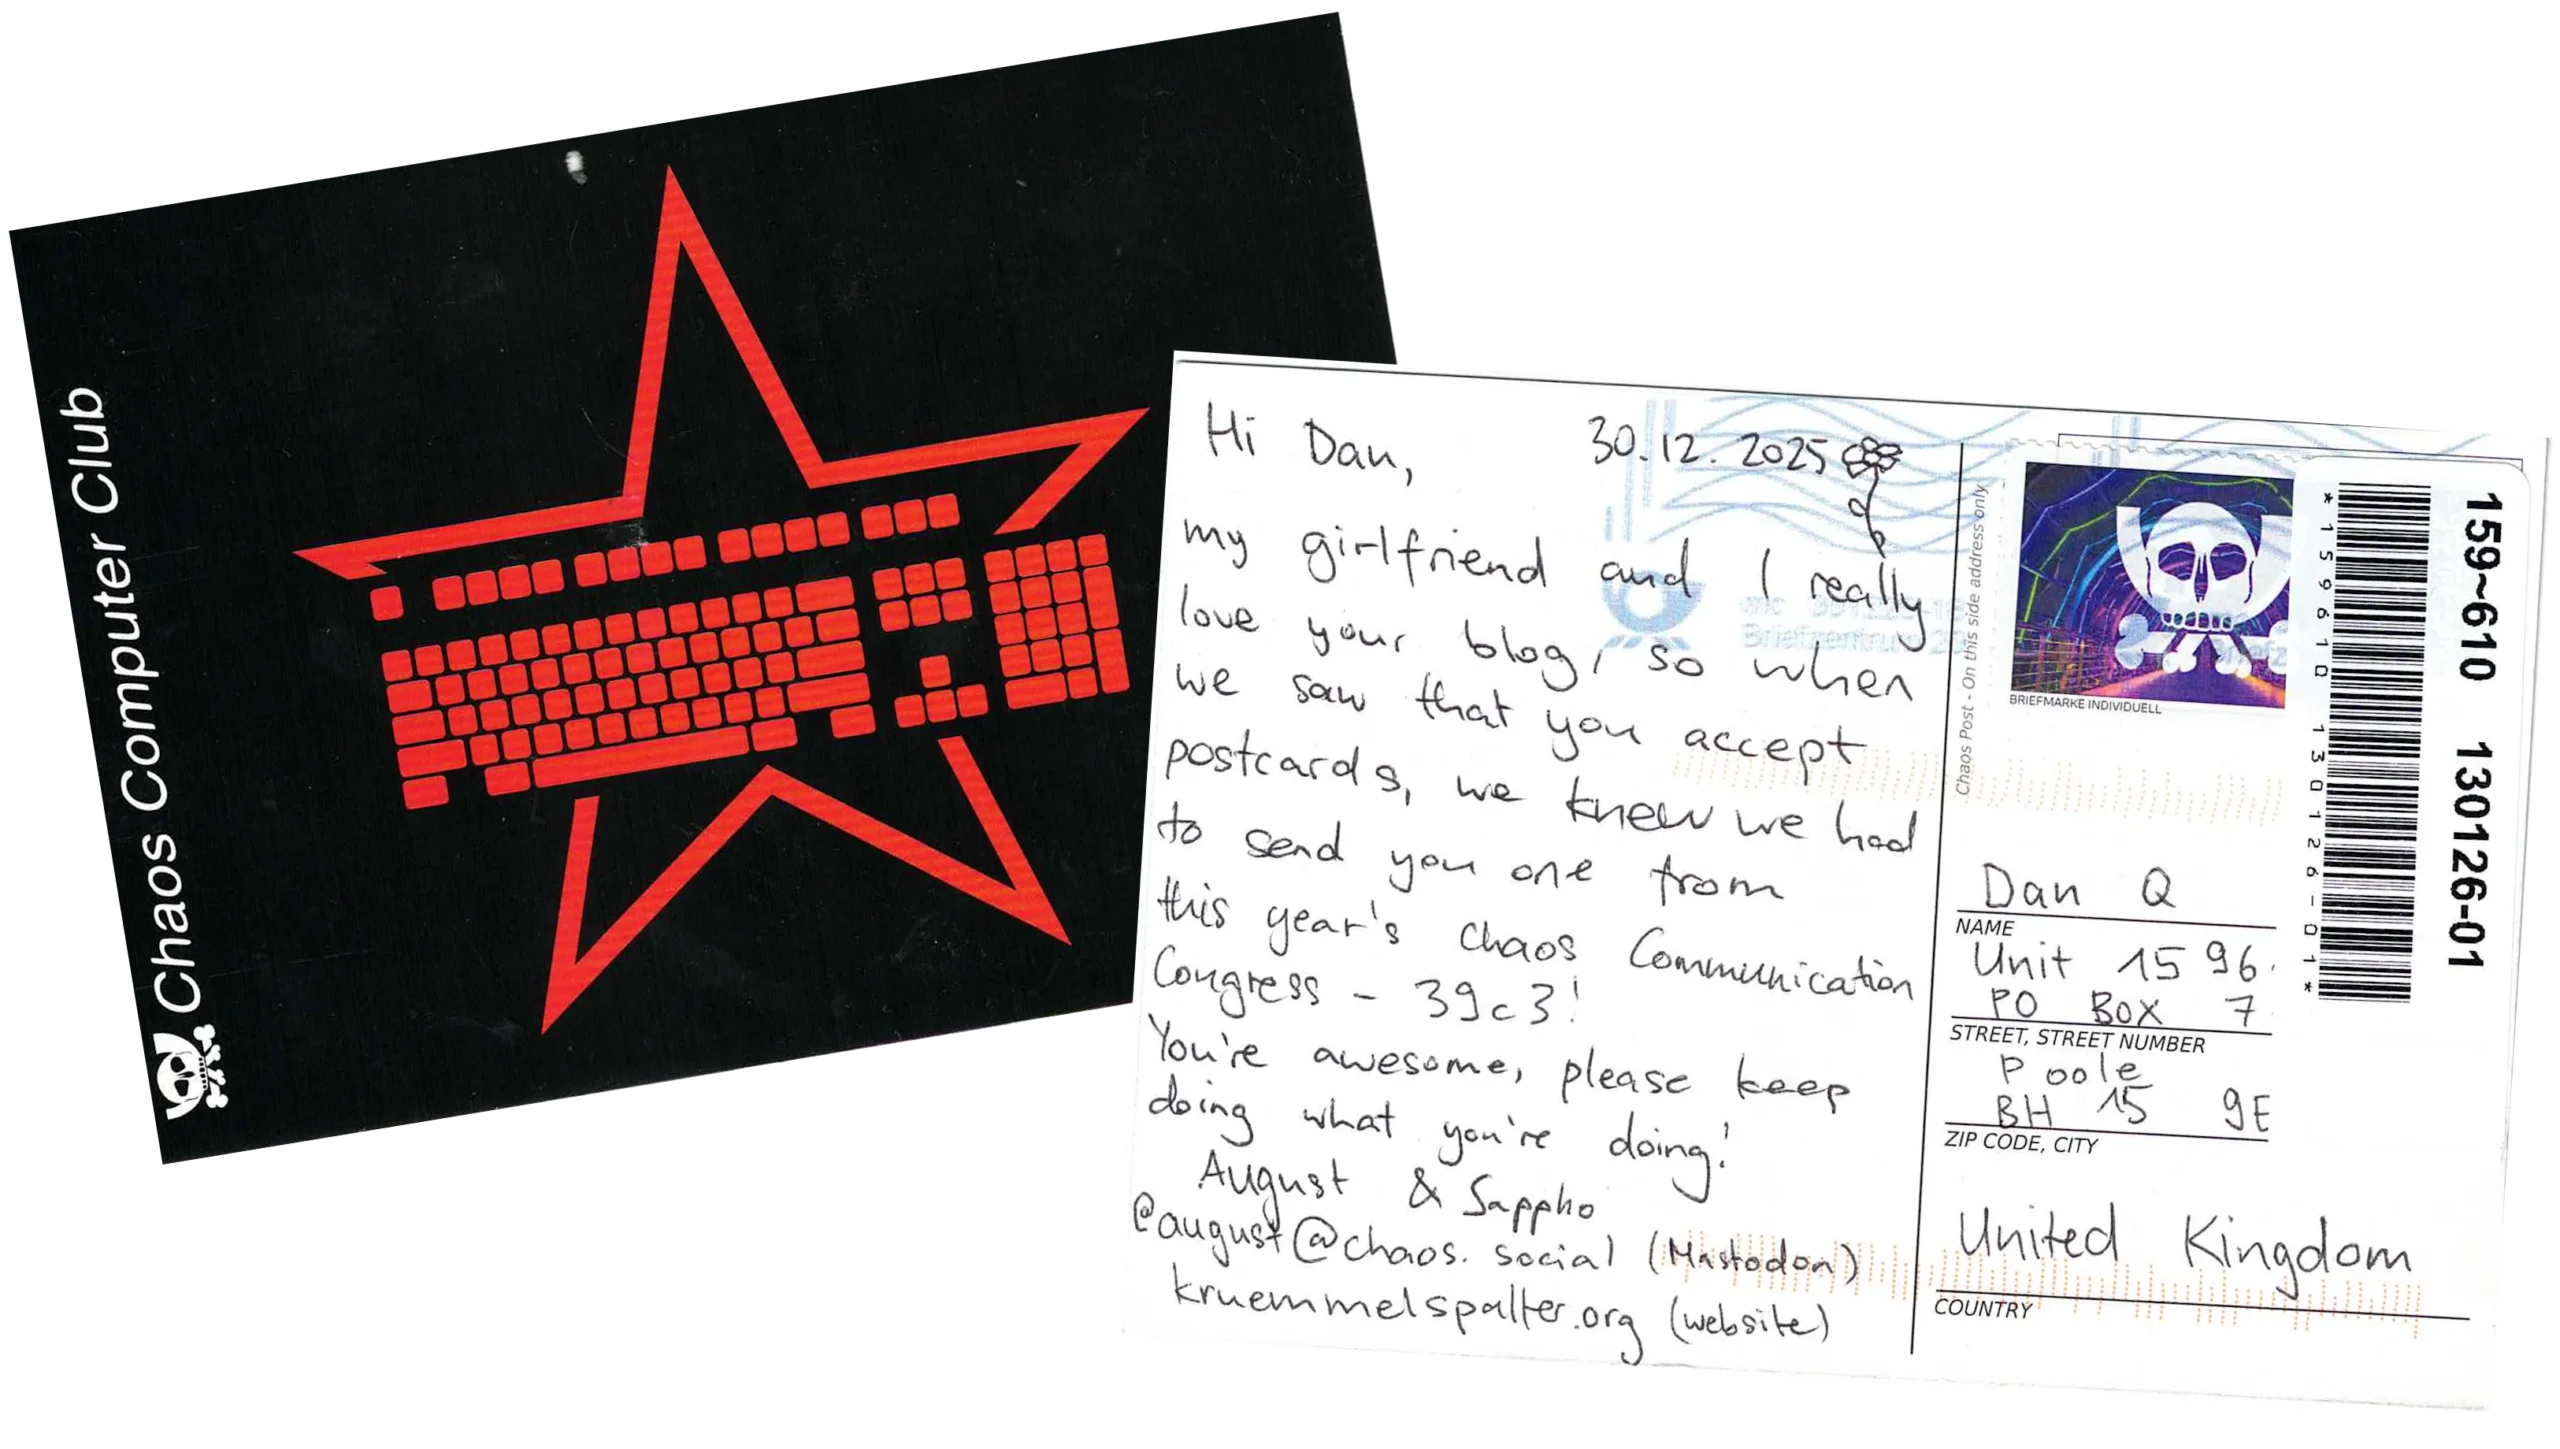 Chaos Computer Club
Hi Dan,
30.12.2025
my girlfriend and I really
love your blog, so when
we saw that you accept
postcards, we knew we had
to send you one from
this year's Chaos Communication
Congress - 39c3!
You're awesome, please keep
doing what you're doing!
August & Sappho
@august@chaos.social (Mastodon)
kruemmelspalter.org (website)
Chaos Post - On this side address only
Briefzentrum
BRIEFMARKE INDIVIDUELL
*159610130126-01*
159~610 130126-01
Dan Q
NAME
Unit 1596
PO BOX 7
STREET, STREET NUMBER
Poole
BH15 9E
ZIP CODE, CITY
United Kingdom
COUNTRY